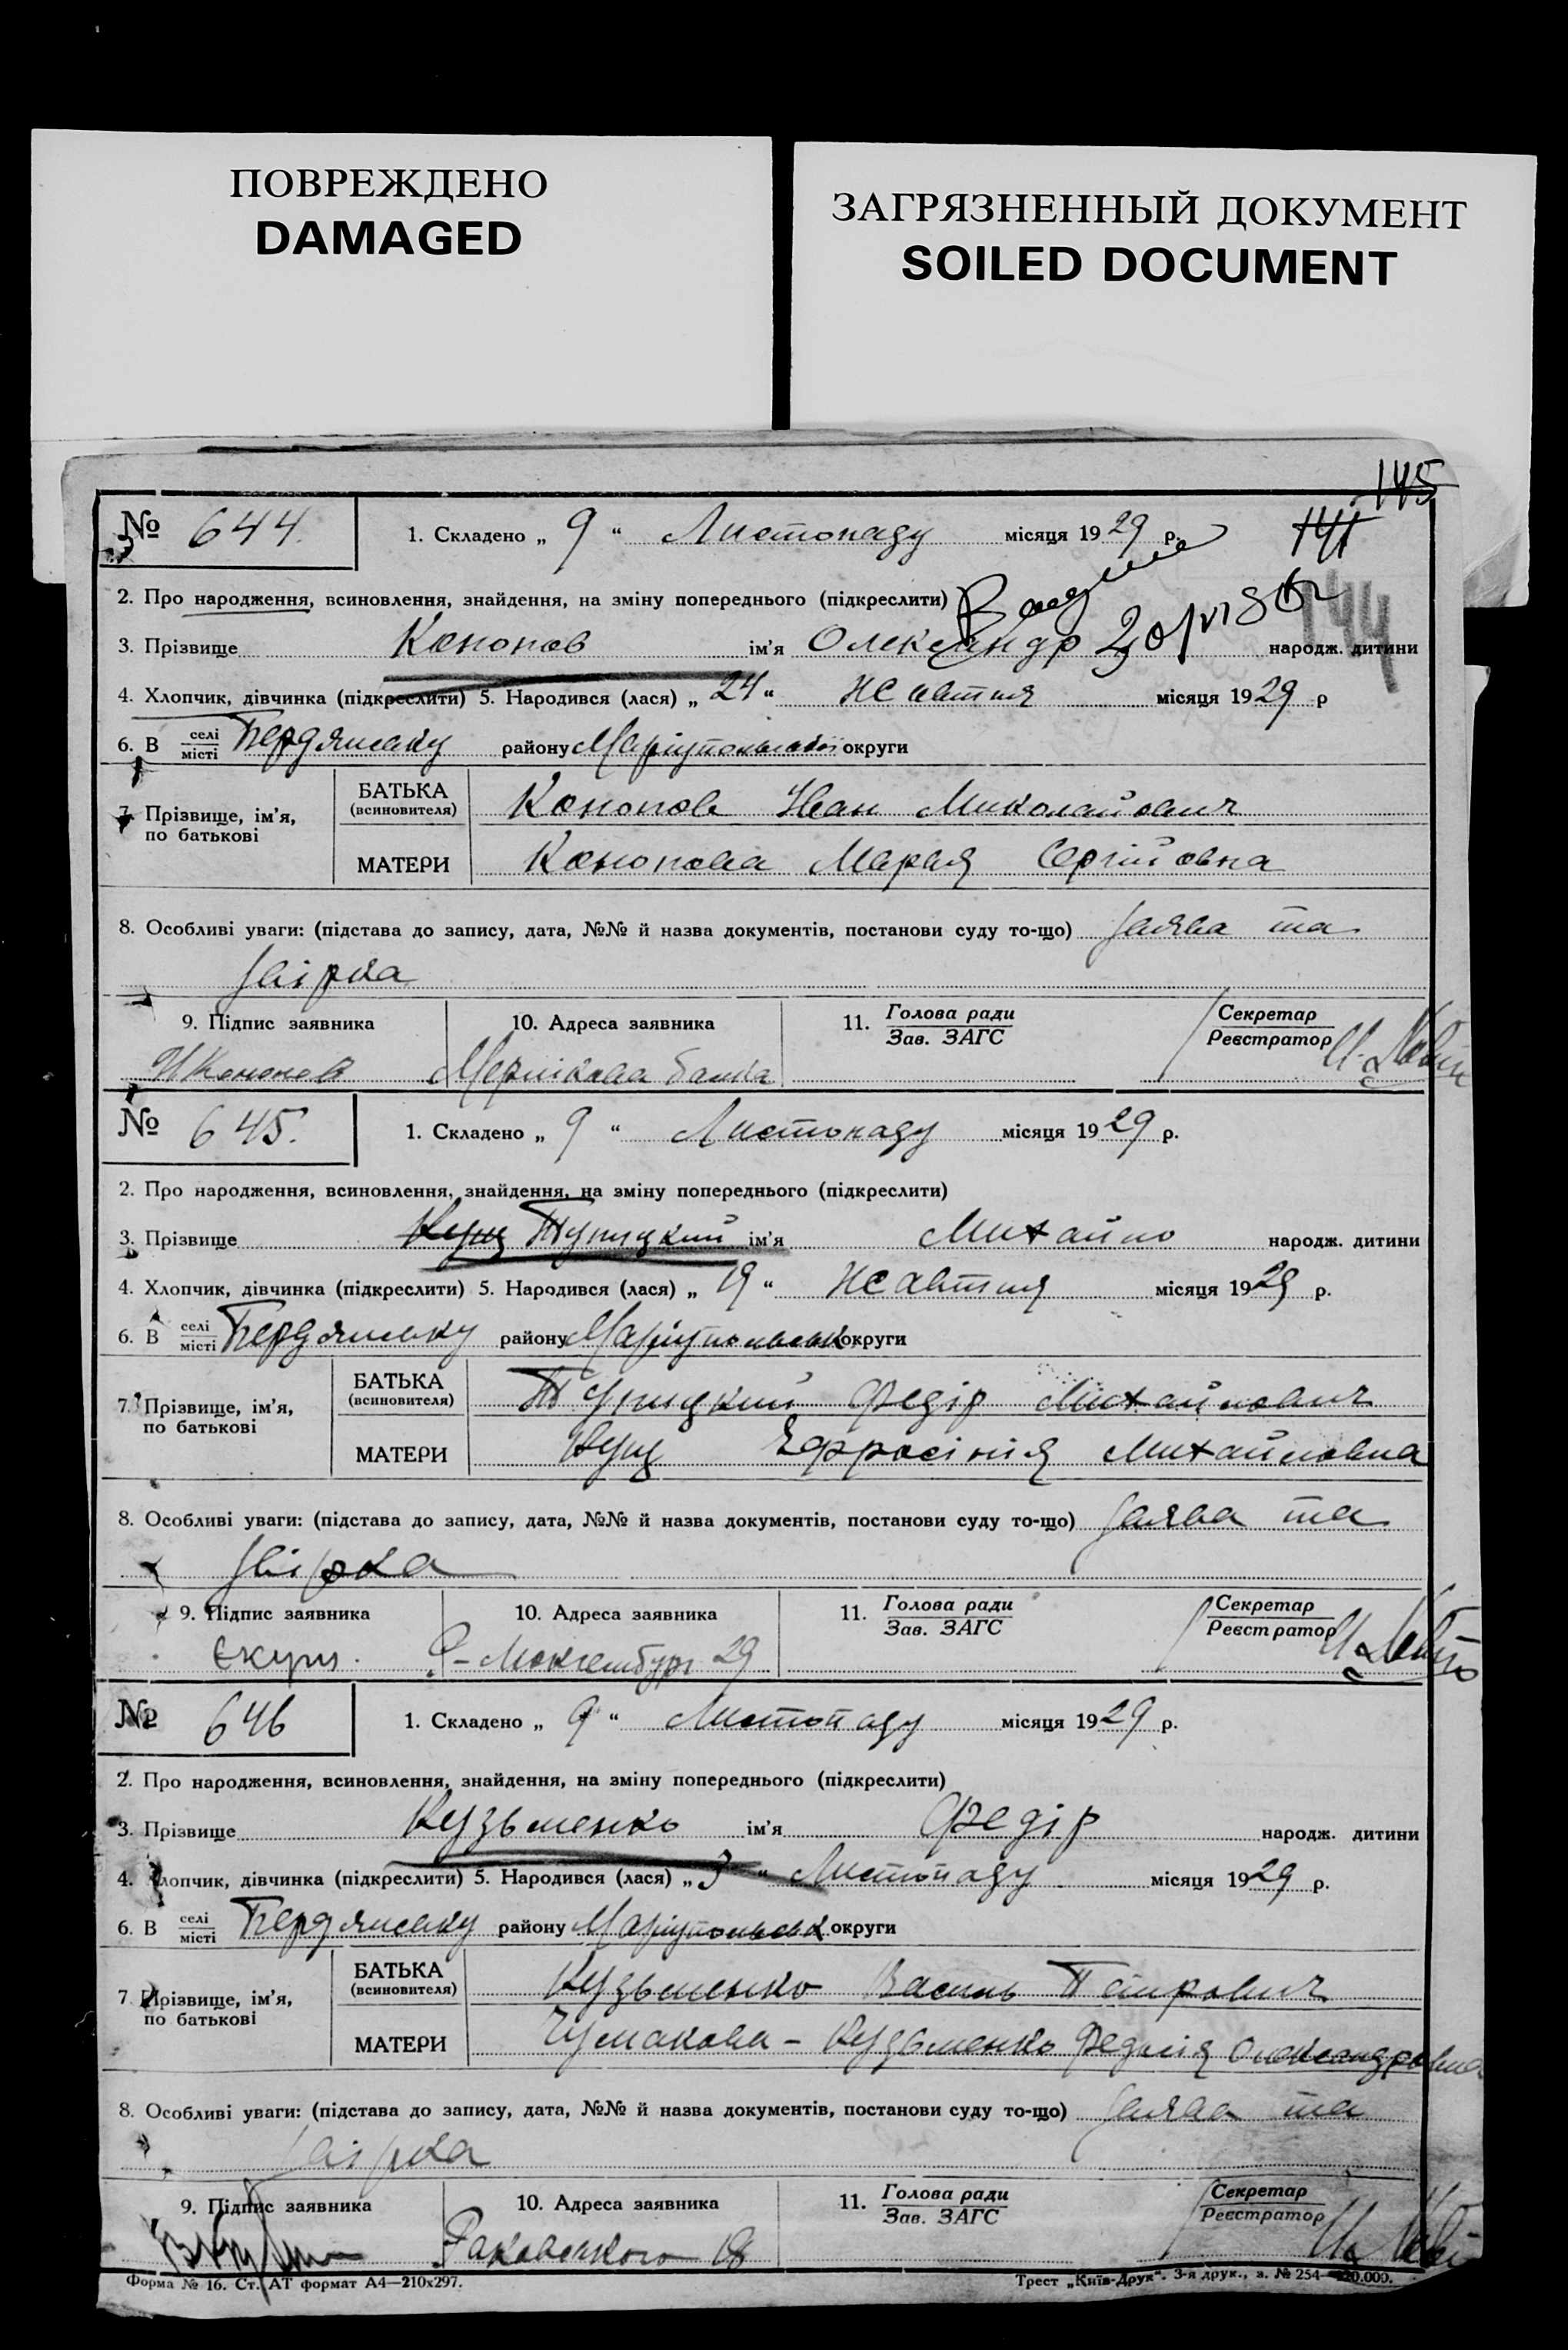 ПОВРЕЖДЕНО
DAMAGED
ЗАГРЯЗНЕННЫЙ ДОКУМЕНТ
SOILED DOCUMENT
145
141
144
№ 644. 1. Складено „ 9 “ Листопаду місяця 1929 р.
2. Про народження, всиновлення, знайдення, на зміну попереднього (підкреслити)
3. Прізвище Кононов ім'я Олександр народж. дитини
4. Хлопчик, дівчинка (підкреслити) 5. Народився (лася) „ 24 “ Жовтня місяця 1929 р
6. В селі/місті Бердянську району Маріупольської округи
7. Прізвище, ім'я, по батькові
БАТЬКА (всиновителя) Кононов Иван Миколайович
МАТЕРИ Кононова Мария Сергіївна
8. Особливі уваги: (підстава до запису, дата, №№ й назва документів, постанови суду то-що) Заява та
звірка
9. Підпис заявника 10. Адреса заявника 11. Голова ради/Зав. ЗАГС Секретар/Реєстратор
И Кононов балка
№ 645. 1. Складено „ 9 “ Листопаду місяця 1929 р.
2. Про народження, всиновлення, знайдення, на зміну попереднього (підкреслити)
3. Прізвище Кущ Тупицкий ім'я Михайло народж. дитини
4. Хлопчик, дівчинка (підкреслити) 5. Народився (лася) „ 19 “ Жовтня місяця 1929 р.
6. В селі/місті Бердянську району Маріупольськ округи
7. Прізвище, ім'я, по батькові
БАТЬКА (всиновителя) Тупицкий Федір Михайлович
МАТЕРИ Кущ Ефросінія Михайловна
8. Особливі уваги: (підстава до запису, дата, №№ й назва документів, постанови суду то-що) Заява та
звірка
9. Підпис заявника 10. Адреса заявника 11. Голова ради/Зав. ЗАГС Секретар/Реєстратор
Єкущ. Р-Люксембург 29
№ 646 1. Складено „ 9 “ Листопаду місяця 1929 р.
2. Про народження, всиновлення, знайдення, на зміну попереднього (підкреслити)
3. Прізвище Кузьменко ім'я Федір народж. дитини
4. Хлопчик, дівчинка (підкреслити) 5. Народився (лася) „ 3 “ Листопаду місяця 1929 р.
6. В селі/місті Бердянську району Маріупольськ округи
7. Прізвище, ім'я, по батькові
БАТЬКА (всиновителя) Кузьменко Василь Петрович
МАТЕРИ Чумакова - Кузьменко Олександровна
8. Особливі уваги: (підстава до запису, дата, №№ й назва документів, постанови суду то-що) Заява та
звірка
9. Підпис заявника 10. Адреса заявника 11. Голова ради/Зав. ЗАГС Секретар/Реєстратор
Раковського 18
Форма № 16. Ст. АТ формат А4—210х297.
Трест „Київ-Друк“. 3-я друк., з. № 254—